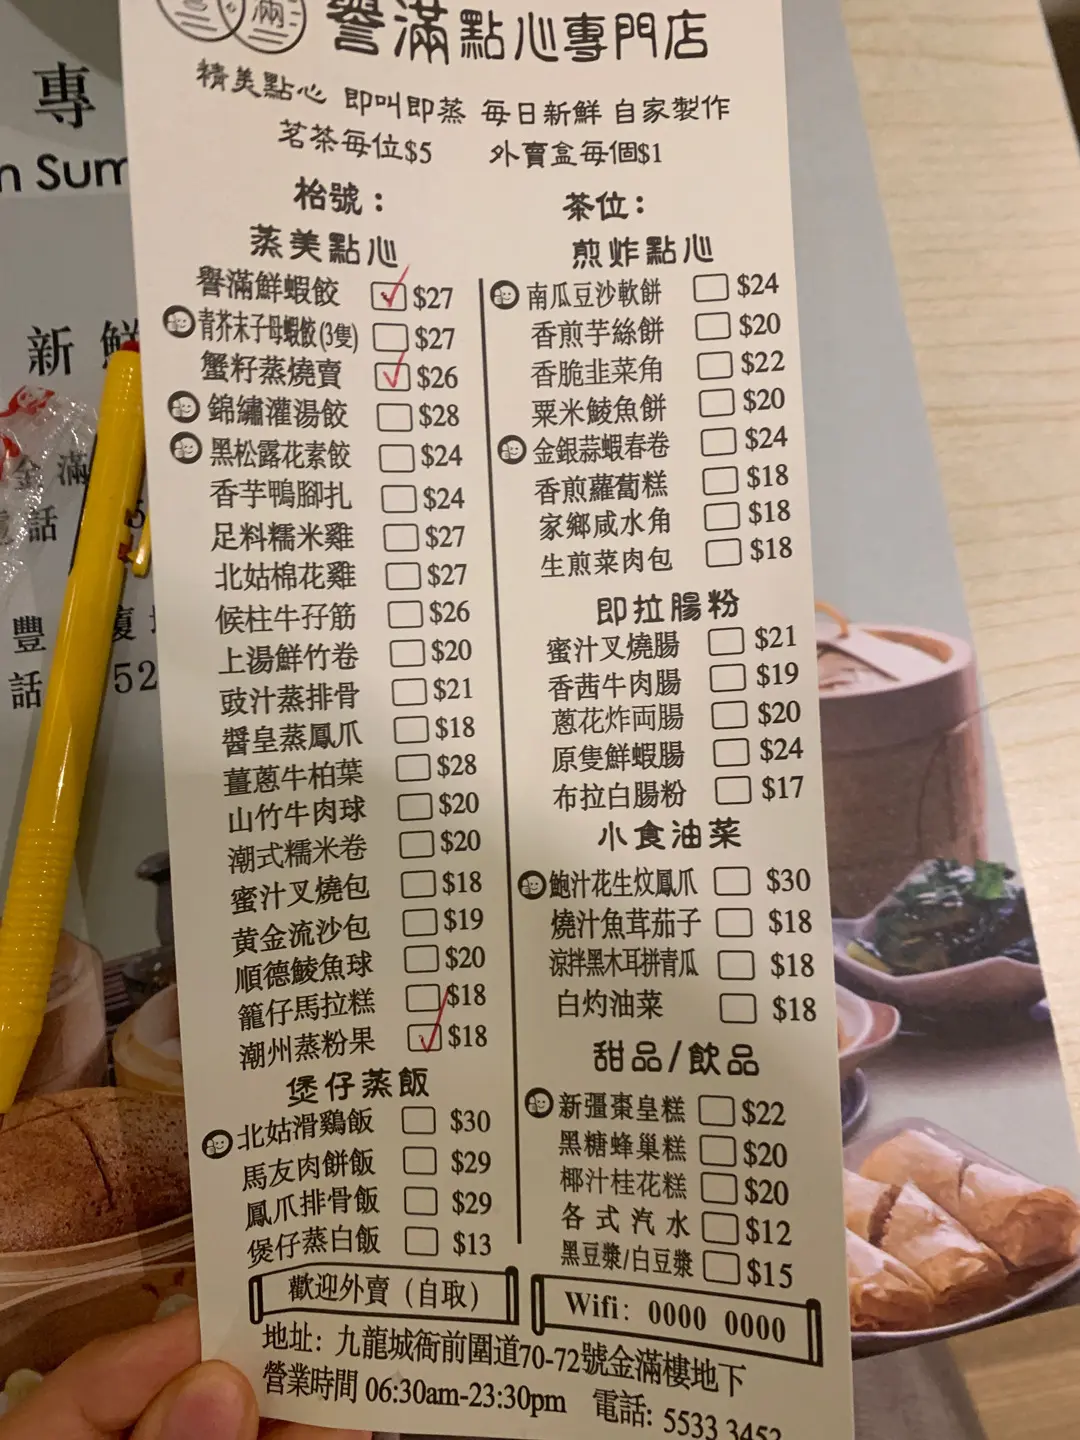 譽滿點心專門店
精美點心 即叫即蒸 每日新鮮 自家製作
茗茶每位$5 外賣盒每個$1
枱號：
蒸美點心
譽滿鮮蝦餃 $27
青芥末子母蝦餃(3隻) $27
蟹籽蒸燒賣 $26
錦繡灌湯餃 $28
黑松露花素餃 $24
香芋鴨腳扎 $24
足料糯米雞 $27
北姑棉花雞 $27
候柱牛孖筋 $26
上湯鮮竹卷 $20
豉汁蒸排骨 $21
醬皇蒸鳳爪 $18
薑蔥牛柏葉 $28
山竹牛肉球 $20
潮式糯米卷 $20
蜜汁叉燒包 $18
黄金流沙包 $19
順德鯪魚球 $20
籠仔馬拉糕 $18
潮州蒸粉果 $18
煲仔蒸飯
北姑滑鷄飯 $30
馬友肉餅飯 $29
鳳爪排骨飯 $29
煲仔蒸白飯 $13
歡迎外賣（自取）
茶位：
煎炸點心
南瓜豆沙軟餅 $24
香煎芋絲餅 $20
香脆韭菜角 $22
粟米鯪魚餅 $20
金銀蒜蝦春卷 $24
香煎蘿蔔糕 $18
家鄉咸水角 $18
生煎菜肉包 $18
即拉腸粉
蜜汁叉燒腸 $21
香茜牛肉腸 $19
蔥花炸両腸 $20
原隻鮮蝦腸 $24
布拉白腸粉 $17
小食油菜
鮑汁花生炆鳳爪 $30
燒汁魚茸茄子 $18
涼拌黑木耳拼青瓜 $18
白灼油菜 $18
甜品/飲品
新彊棗皇糕 $22
黑糖蜂巢糕 $20
椰汁桂花糕 $20
各式汽水 $12
黑豆漿/白豆漿 $15
Wifi: 0000 0000
地址：九龍城衙前圍道70-72號金滿樓地下
營業時間 06:30am-23:30pm 電話: 5533 3452
專
Sum
新鮮
金滿
話
豐
話 52